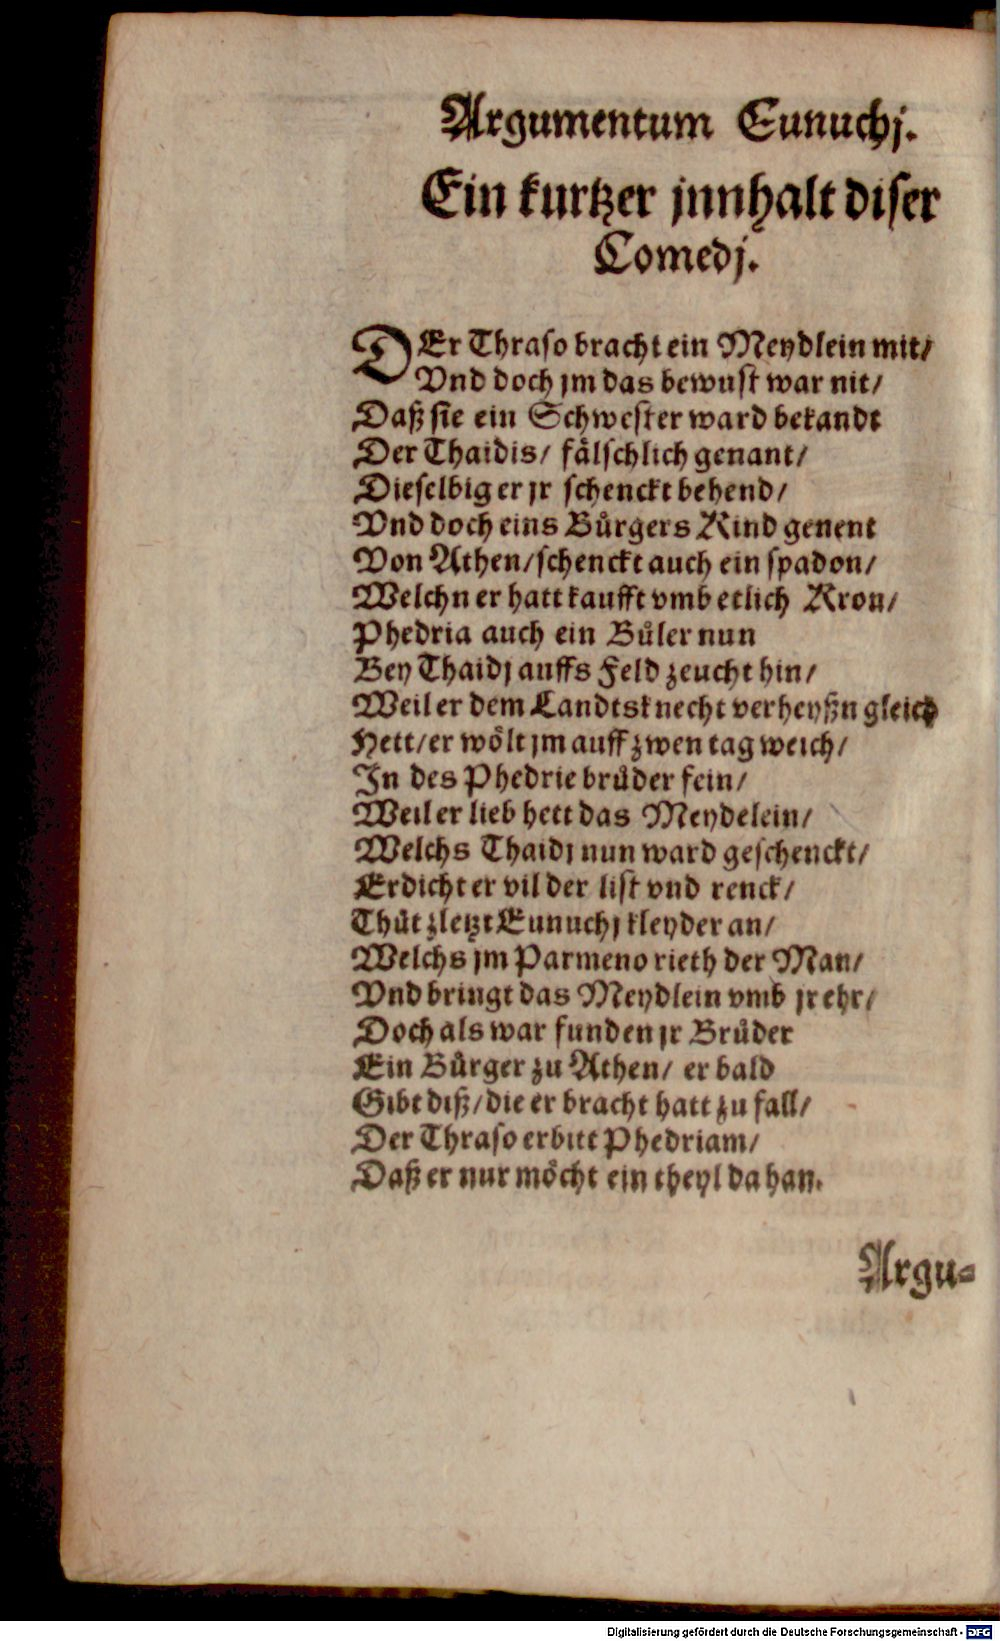 Argumentum Eunuchj.
Ein kurtzer jnnhalt diser
Comedj.
DEr Thraso bracht ein Meydlein mit/
Vnd doch jm das bewust war nit/
Daß sie ein Schwester ward bekandt
Der Thaidis/ fälschlich genant/
Dieselbig er jr schenckt behend/
Vnd doch eins Bůrgers Kind genent
Von Athen/ schenckt auch ein spadon/
Welchn er hatt kaufft vmb etlich Kron/
Phedria auch ein Bůler nun
Bey Thaidj auffs Feld zeucht hin/
Weil er dem Landtsknecht verheyßn gleich
Hett/ er wölt jm auff zwen tag weich/
In des Phedrie brůder fein/
Weil er lieb hett das Meydelein/
Welchs Thaidj nun ward geschenckt/
Erdicht er vil der list vnd renck/
Thůt zletzt Eunuchj kleyder an/
Welchs jm Parmeno rieth der Man/
Vnd bringt das Meydlein vmb jr ehr/
Doch als war funden jr Brůder
Ein Bůrger zu Athen/ er bald
Gibt diß/ die er bracht hatt zu fall/
Der Thraso erbitt Phedriam/
Daß er nur möcht ein theyl da han.
Argu-
Digitalisierung gefördert durch die Deutsche Forschungsgemeinschaft - DFG